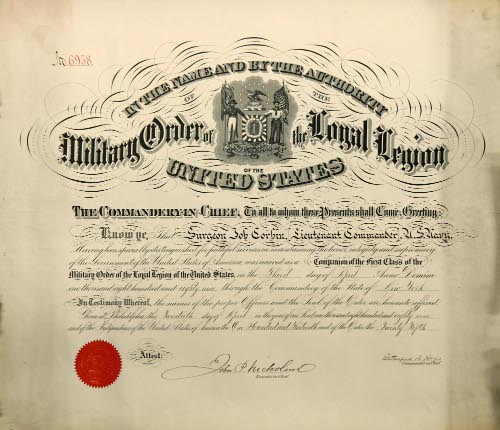 No 6938
IN THE NAME AND BY THE AUTHORITY
OF THE
Military Order of the Loyal Legion
OF THE
UNITED STATES
THE COMMANDERY-IN-CHIEF, To all to whom these Presents shall Come, Greeting:
Know ye, That Surgeon Job Corbin, Lieutenant Commander, U.S. Navy,
Having been specially distinguished for faithful services in maintaining the honor, integrity and supremacy
of the Government of the United States of America was received as a Companion of the First Class of the
Military Order of the Loyal Legion of the United States, on the Third day of April Anno Domini
one thousand eight hundred and eighty nine, through the Commandery of the State of New York.
In Testimony Whereof, the names of the proper Officers and the Seal of the Order are hereunto affixed
Given at Philadelphia, the Twentieth day of April in the year of our Lord one thousand eight hundred and eighty nine
and of the Independence of the United States of America the One Hundred and thirteenth and of the Order the Twenty Fifth
Attest:
John P. Nicholson
Recorder-in-Chief
Commander-in-Chief